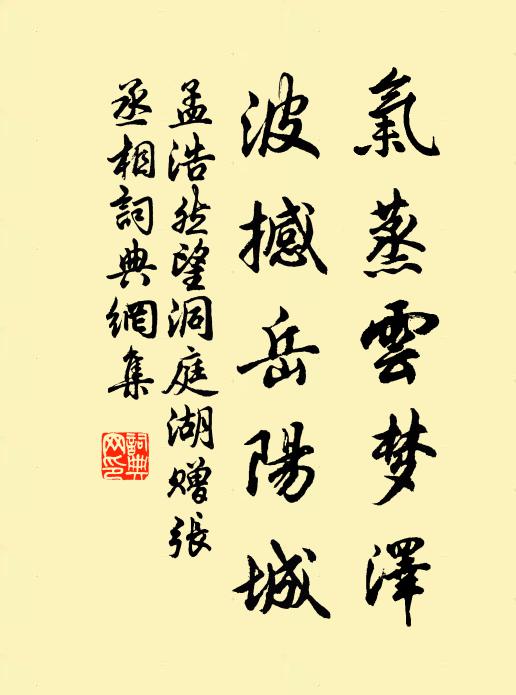 氣蒸雲梦澤
波撼岳陽城
孟浩然望洞庭湖赠張
丞相詞典網集
詞典
网印